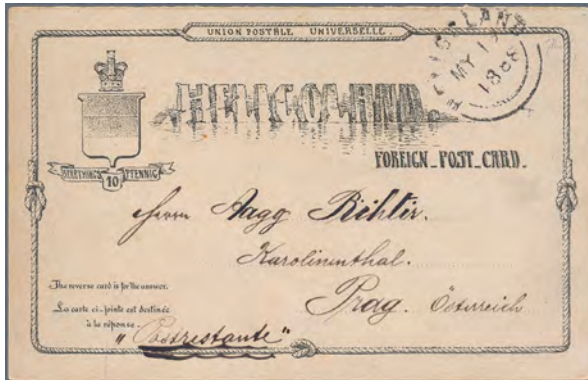 UNION POSTALE UNIVERSELLE.
HELIGOLAND
MY 1
1888
HELIGOLAND.
FOREIGN_POST_CARD.
10 PFENNIG
Herrn Aagg Richtir.
Karolinenthal.
Prag. Österreich
The reverse card is for the answer.
La carte ci-jointe est destinée
à la réponse.
"Postrestante"